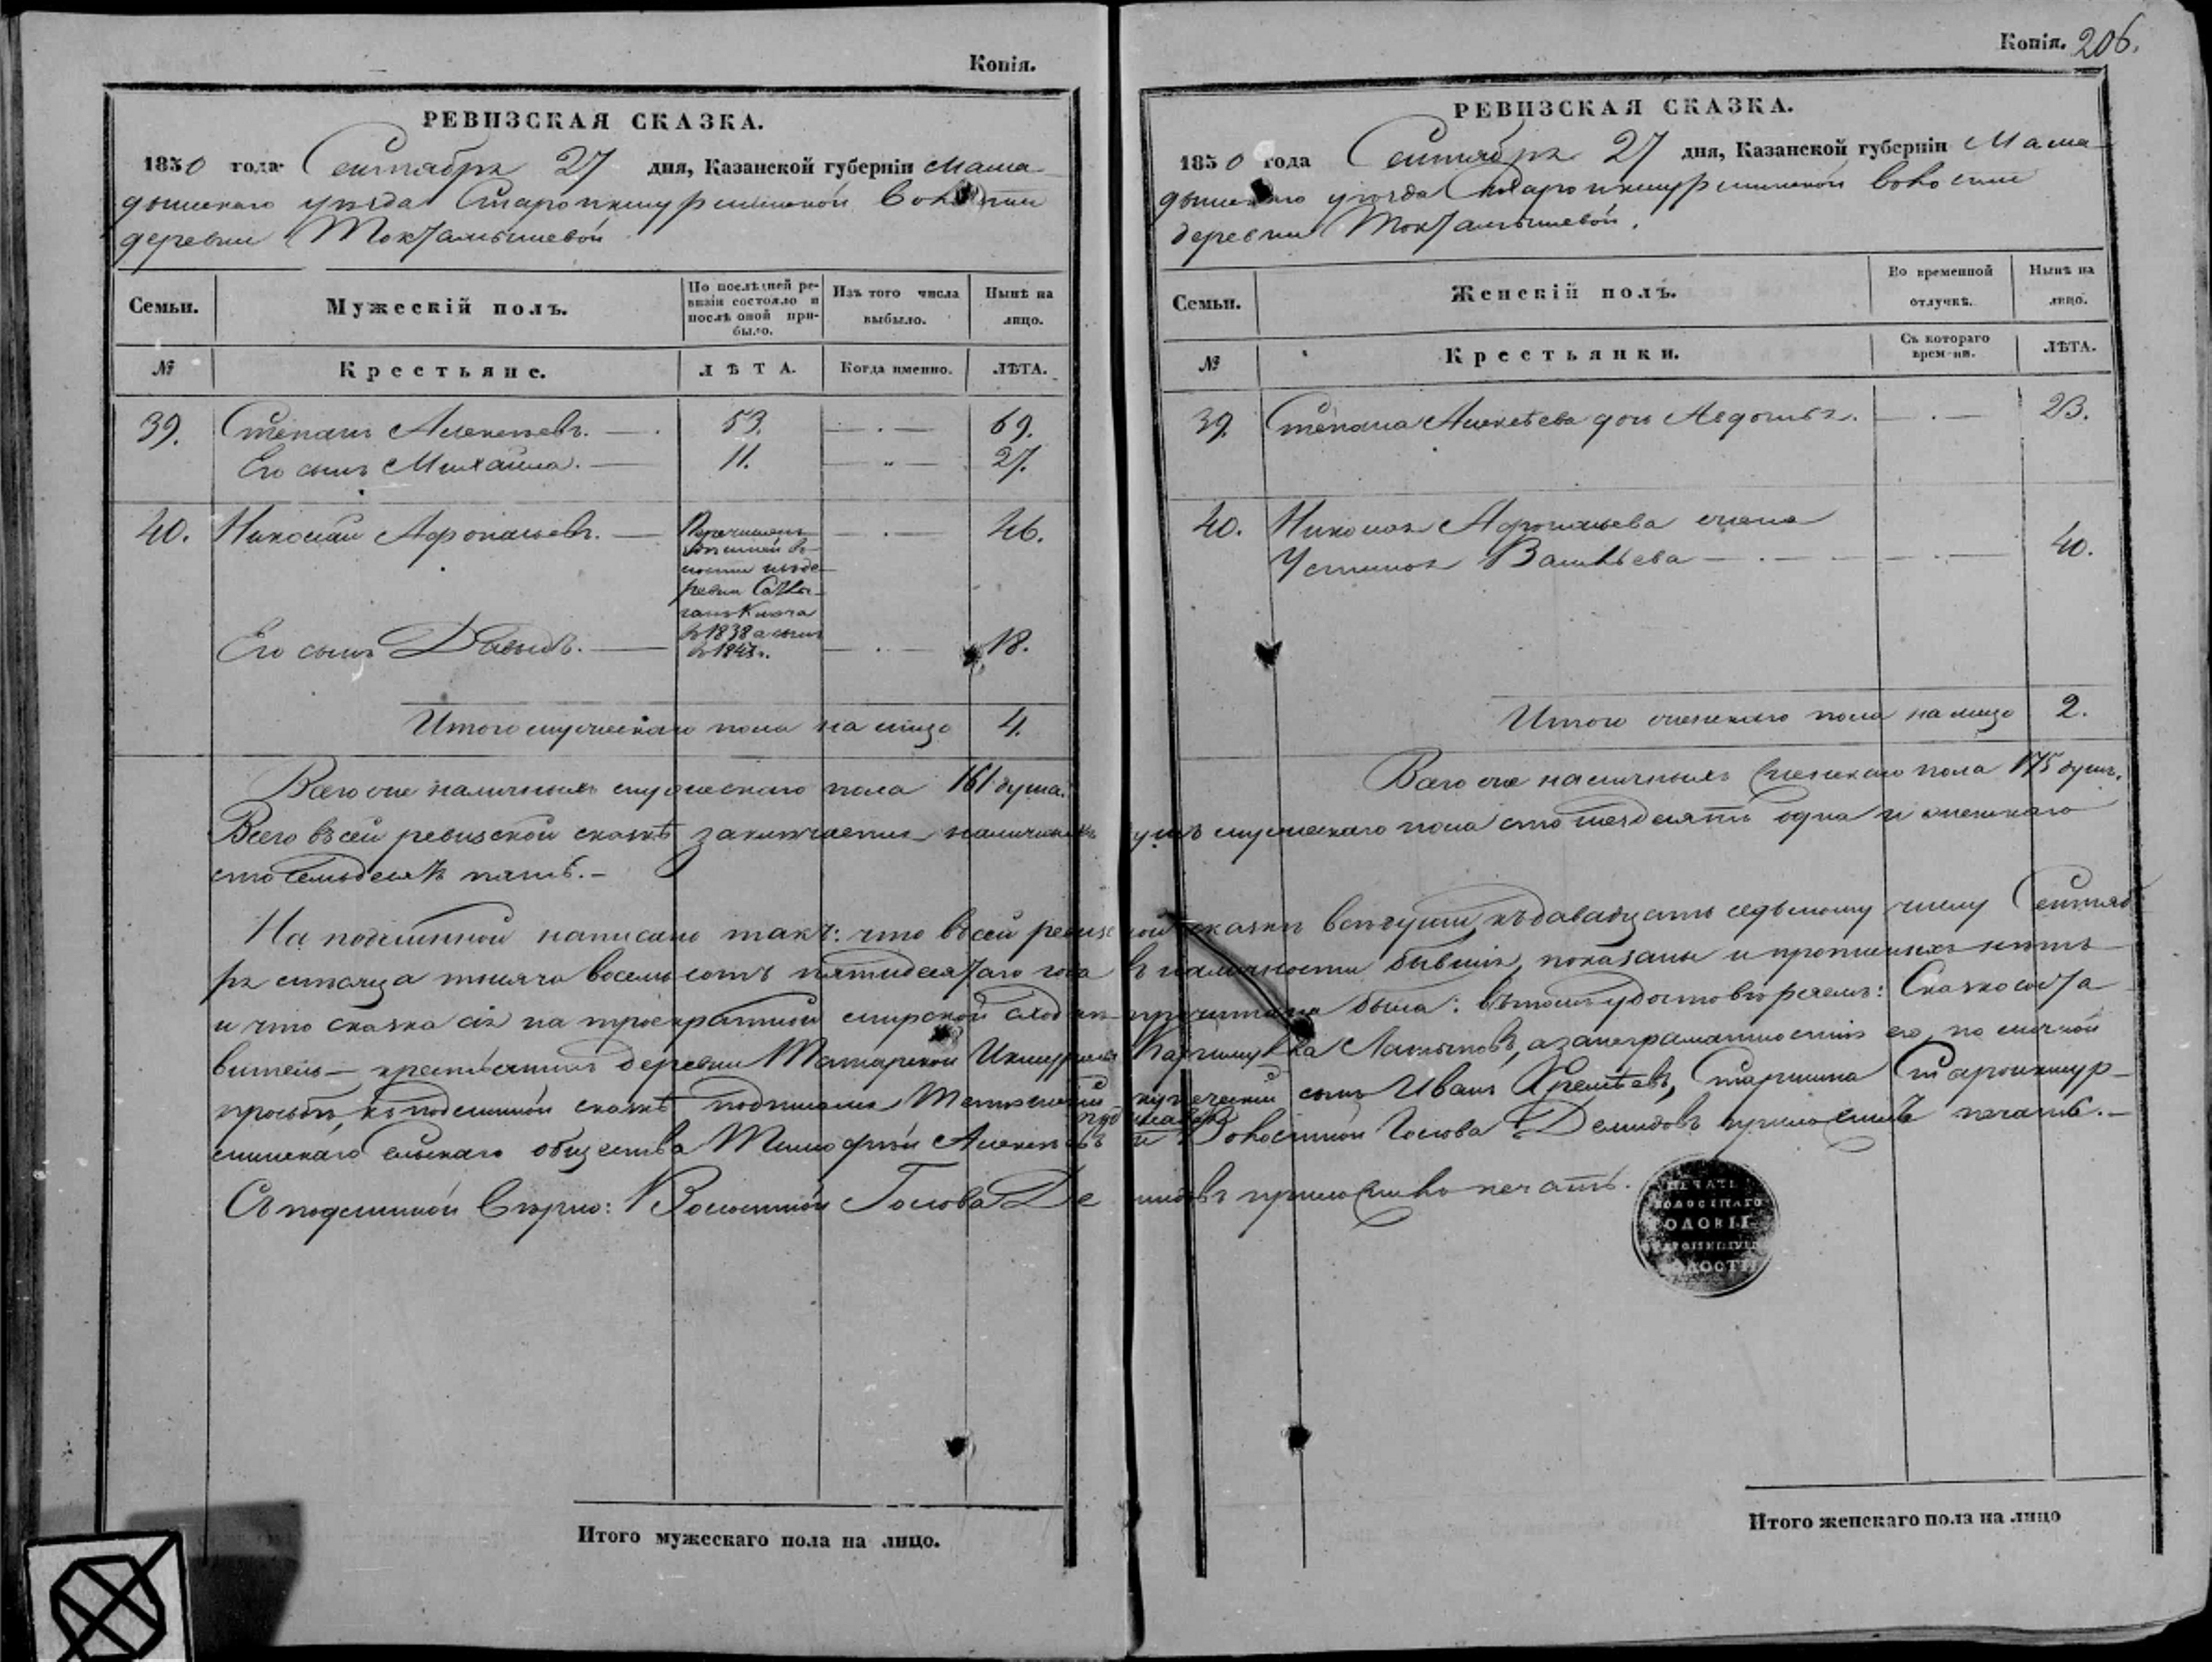 Копія.
РЕВИЗСКАЯ СКАЗКА.
1850 года Сентября 27 дня, Казанской губерніи Мама-
дышскаго уѣзда Староикшурминской Волости
деревни Токталышевой
Семьи. Мужескій полъ. По послѣдней ре- визіи состояло и послѣ оной при- было. Изъ того числа выбыло. Нынѣ на лицо.
№ Крестьяне. ЛѢТА. Когда именно. ЛѢТА.
39. Степанъ Алексѣевъ. 53. 69.
Его сынъ Михайла. 11. 27.
40. Николай Афонасьевъ. 46.
Перечисленъ
ности изъ де-
ревни
Ключа
въ 1838 а сынъ
Его сынъ Давыдъ. въ 184 г. 18.
Итого мужескаго пола на лицо 4.
Всего же наличныхъ мужескаго пола 161 душа.
Копія. 206.
РЕВИЗСКАЯ СКАЗКА.
1850 года Сентября 27 дня, Казанской губерніи Мама-
дышскаго уѣзда Староикшурминской волости
деревни Токталышевой.
Семьи. Женскій полъ. Во временной отлучкѣ. Нынѣ на лицо.
№ Крестьянки. Съ котораго врем-ни. ЛѢТА.
39. Степана Алексѣева дочь Авдотья. 23.
40. Николая Афонасьева жена
Устинья Васильева 40.
Итого женскаго пола на лицо 2.
Всего же наличныхъ женскаго пола 175 душъ.
Всего въ сей ревизской сказкѣ заключается наличныхъ душъ мужескаго пола сто шездесятъ одна и женскаго
сто семьдесятъ пять.-
На подлинной написано такъ: что въ сей ревизской сказкѣ всѣ души къ двадцать седьмому числу Сентяб-
ря мѣсяца тысяча восемь сотъ пятидесятаго года въ наличности бывшія, показаны и прописныхъ нѣтъ
и что сказка сія на троекратной мирской сходкѣ прочитана была: въ томъ удостовѣряемъ: Сказкососта-
витель- крестьянинъ деревни Татарской Икшурмы Латыповъ, а за неграмотностію его, по личной
просьбѣ, къ подлинной сказкѣ подписался купеческій сынъ Иванъ Старшина Староикшур-
минскаго сельскаго общества Тимофѣй Алексѣевъ и Волостной Голова Демидовъ приложили печать.-
Съ подлинной вѣрно: Волостной Голова Демидовъ приложилъ печать.
ПЕЧАТЬ
ВОЛОСТНАГО
ГОЛОВЫ
ВОЛОСТИ
Итого мужескаго пола на лицо.
Итого женскаго пола на лицо